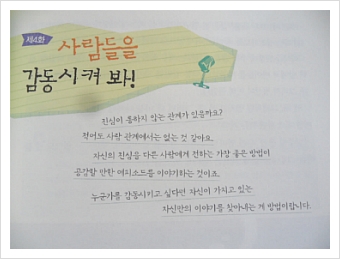 제4화
사람들을
감동시켜 봐!
진심이 통하지 않는 관계가 있을까요?
적어도 사람 관계에서는 없는 것 같아요.
자신의 진심을 다른 사람에게 전하는 가장 좋은 방법이
공감할 만한 에피소드를 이야기하는 것이죠.
누군가를 감동시키고 싶다면 자신이 가지고 있는
자신만의 이야기를 찾아내는 게 방법이랍니다.